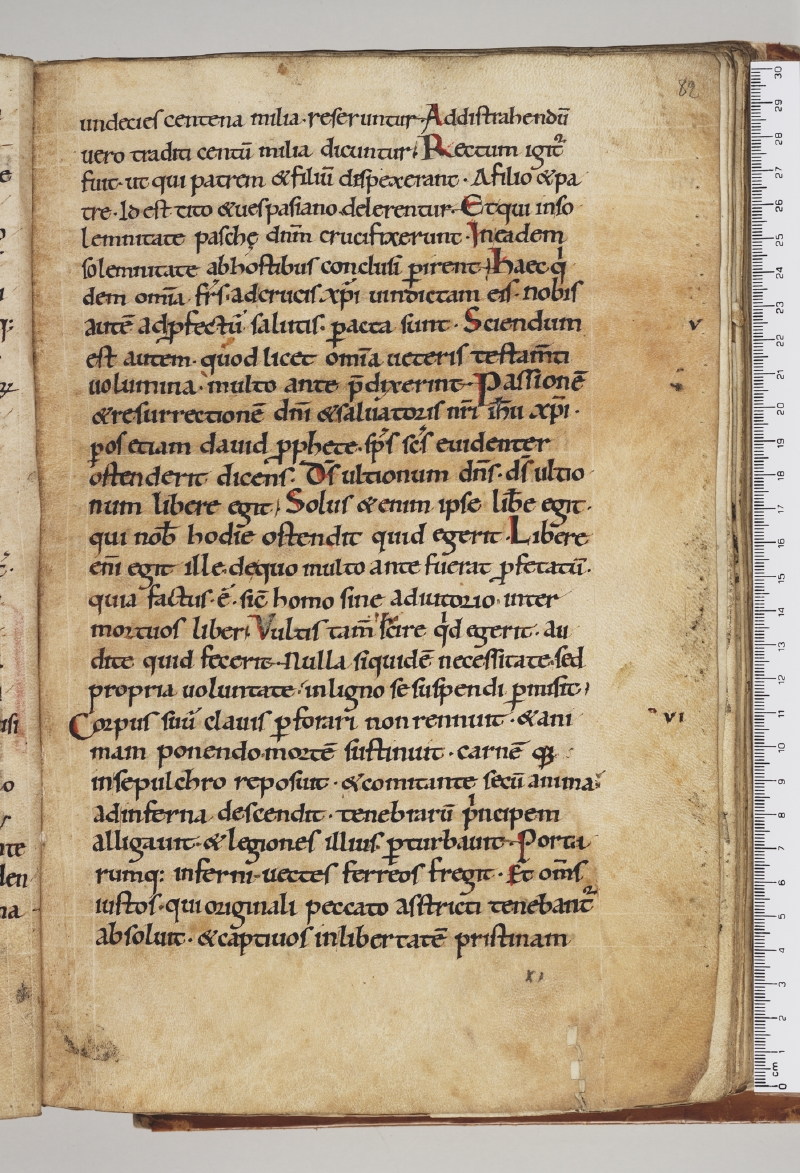 82
undecies centena milia·reseruntur·Addistrahendū
uero traditi centū milia dicuntur; Rectum igit᷑
fuit·ut qui patrem &filiū dispexerant·Afilio &pa
tre·Id est tito &uespasiano delerentur·Etqui inso
lemnitate paschę dn̄m crucifixerunt·Ineadem
solemnitate abhostibus conclusi ꝑirent; Haec qͥ
dem omīa fr̄s·adcrucis xp̄i uindictam eis·nobis
autē adꝑfectū salutis·ꝑacta sunt·Sciendum
est autem·quod licet omīa ueteris testam̄ti
uolumina·multo ante p̄dixerint·Passionē
&resurrectionē dn̄i &saluatoris nr̄i ih̄u xp̄i·
pos etiam dauid ꝓphete·sp̄s sc̄s euidenter
ostenderit dicens·Ds̄ ultionum dn̄s·ds̄ ultio
num libere egit; Solus &enim ipse lib̄e egit·
qui nob̄ hodie ostendit quid egerit·Libere
eni̅ egit ille·dequo multo ante fuerat ꝓfetatū·
quia factus·ē·sic̄ homo sine adiutorio·inter
mortuos liber; Vultis tam̄ scire qd̄ egerit·au
dite quid fecerit·Nulla siquidē necessitate·sed
propria uoluntate·inligno se suspendi ꝑmisit;
Corpus suū clauis ꝑforari non rennuit·&ani
mam ponendo·mortē sustinuit·carnē qꝫ
insepulchro reposuit·&comitante secū anima·
adinferna descendit·tenebrarū pͥncipem
alligauit·&legiones illius ꝑturbauit·Porta
rumq: inferni·uectes ferreos fregit·Et om̄s
iustos·qui originali peccato astricti tenebant᷑
absoluit·&captiuos inlibertatē pristinam
v
vi
xi